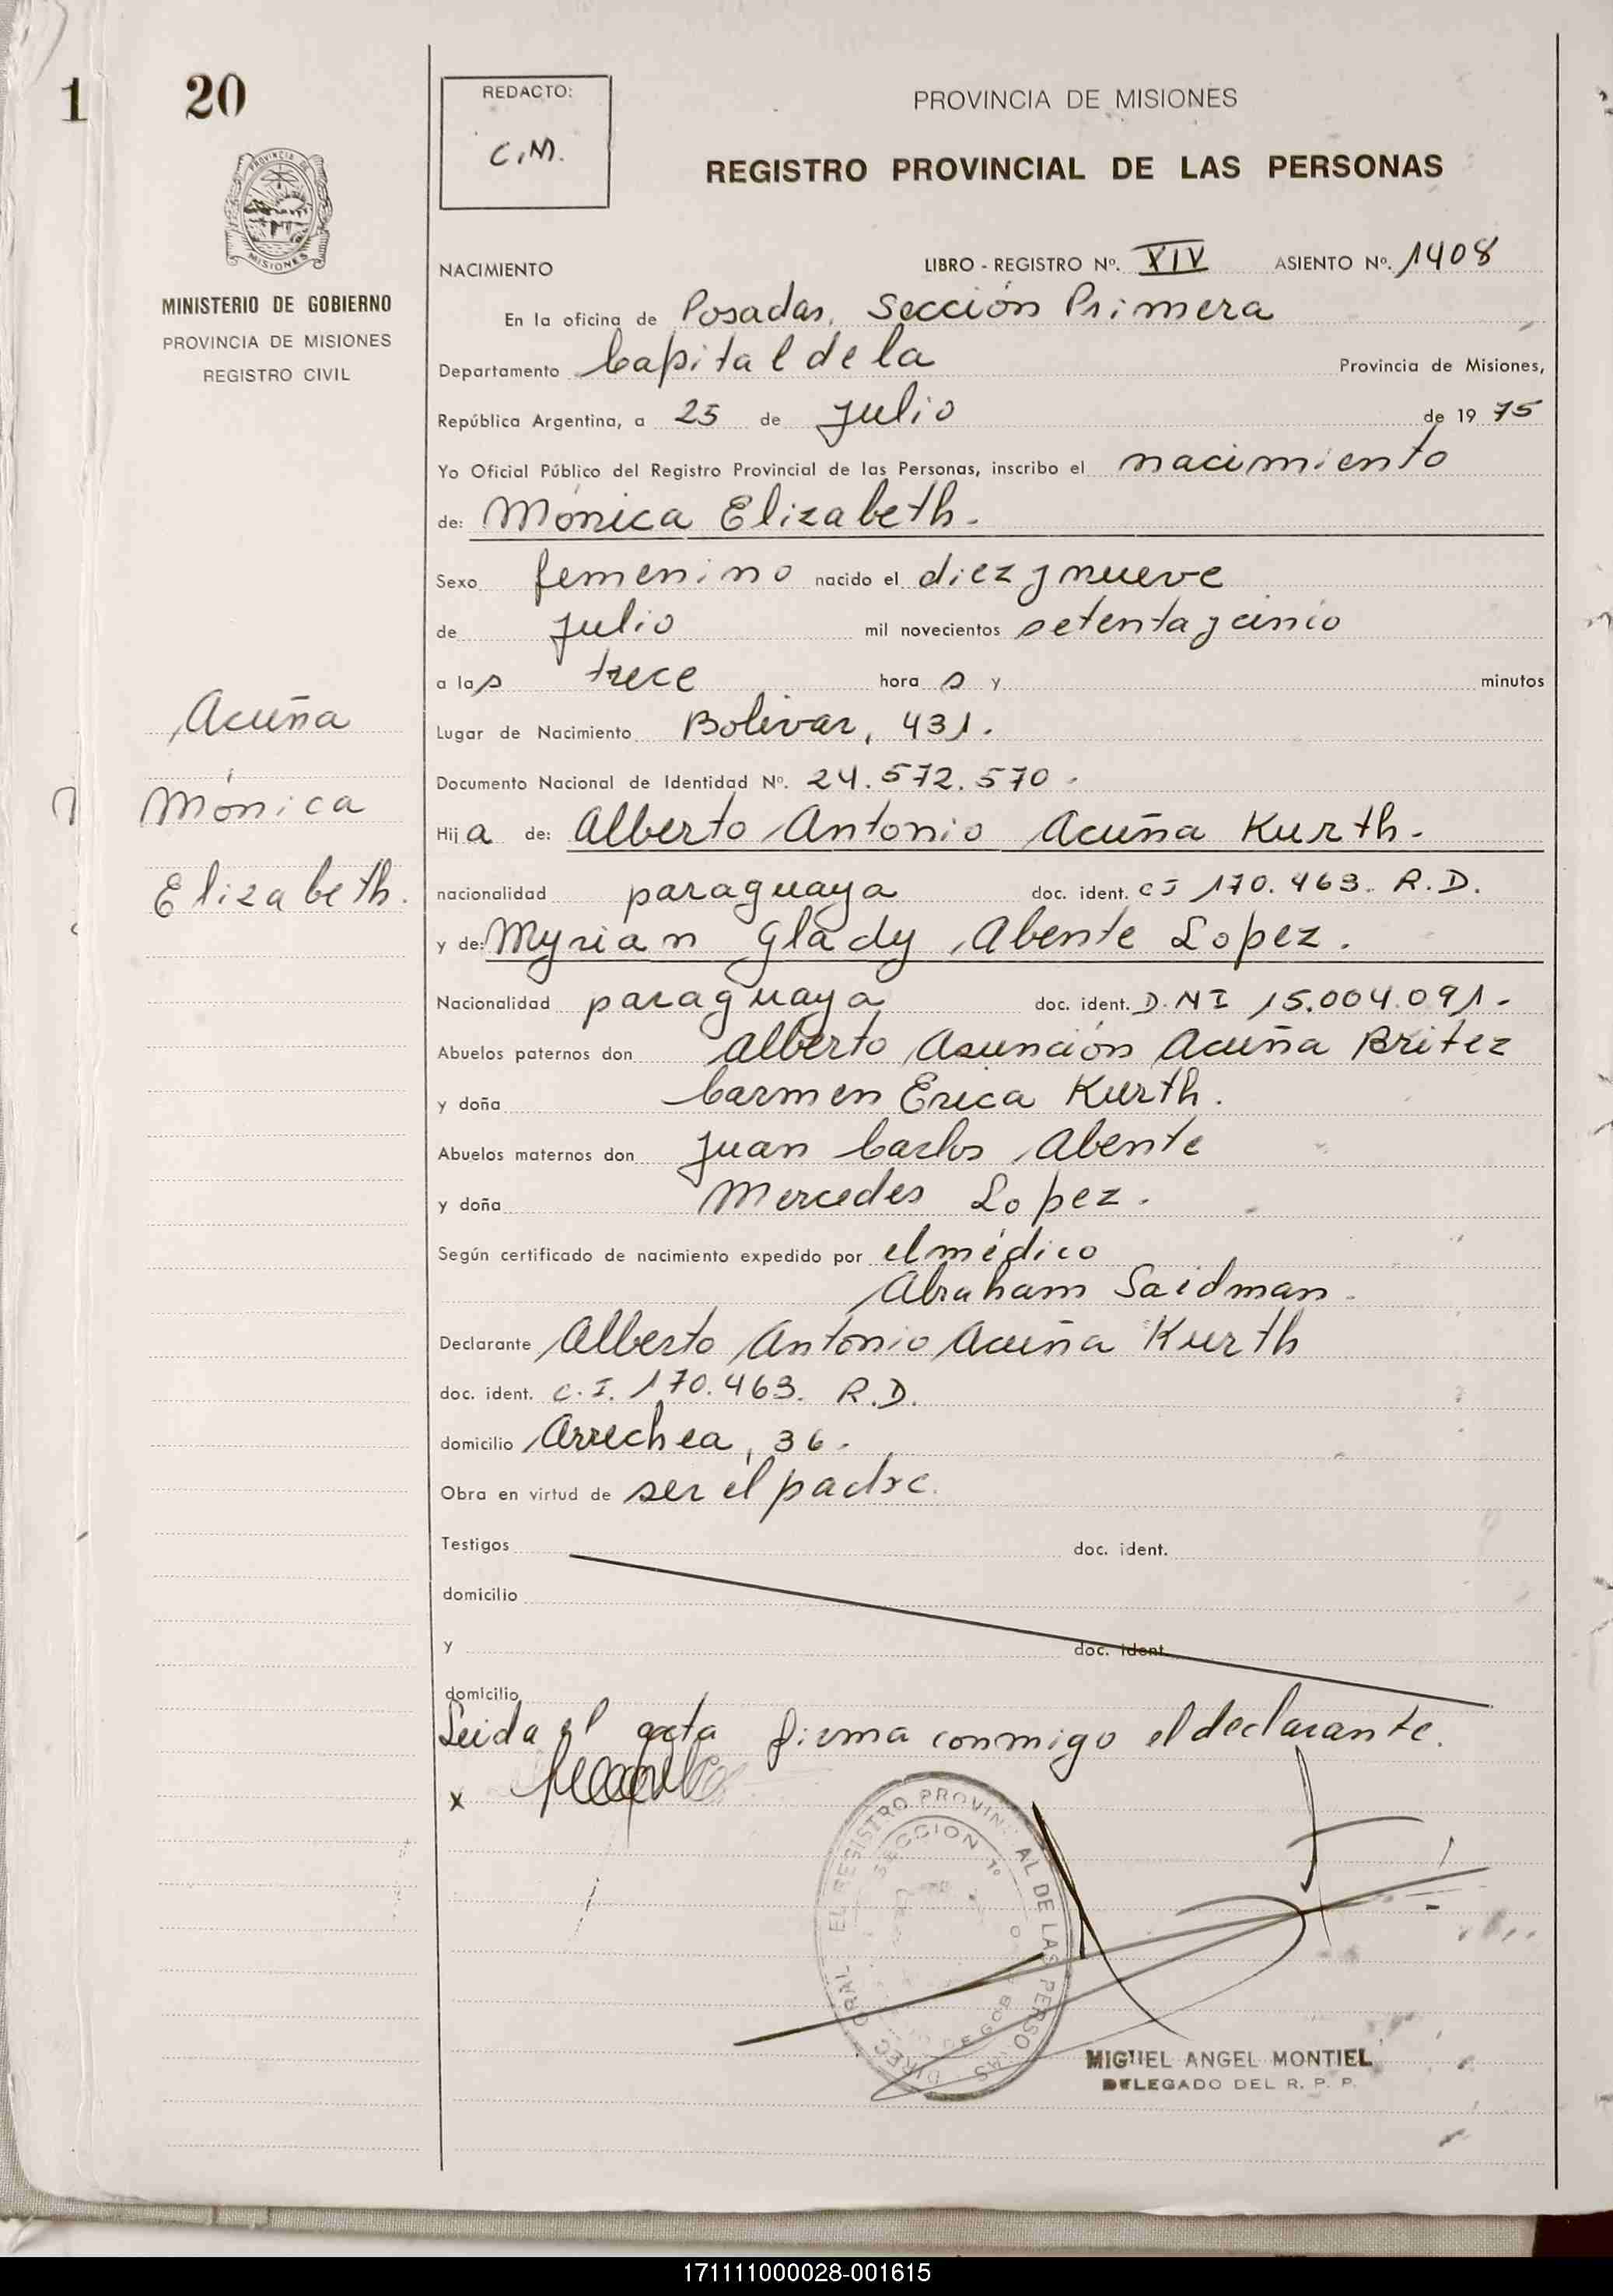 1
20
REDACTO:
C.M.
PROVINCIA DE MISIONES
REGISTRO PROVINCIAL DE LAS PERSONAS
PROVINCIA DE
MISIONES
MINISTERIO DE GOBIERNO
PROVINCIA DE MISIONES
REGISTRO CIVIL
NACIMIENTO LIBRO - REGISTRO Nº. XIV ASIENTO Nº. 1408
En la oficina de Posadas, Sección Primera
Departamento Capital de la Provincia de Misiones,
República Argentina, a 25 de Julio de 19 75
Yo Oficial Público del Registro Provincial de las Personas, inscribo el nacimiento
de: Mónica Elizabeth.
Sexo femenino nacido el diez y nueve
de Julio mil novecientos setenta y cinco
a las trece hora s y minutos
Lugar de Nacimiento Bolivar, 431.
Documento Nacional de Identidad Nº. 24.572.570.
Hij a de: Alberto Antonio Acuña Kurth.
nacionalidad paraguaya doc. ident. CI 170.463. R.D.
y de: Myrian Glady Abente Lopez.
Nacionalidad paraguaya doc. ident. D.NI 15.004.091.
Abuelos paternos don Alberto Asunción Acuña Britez
y doña Carmen Erica Kurth.
Abuelos maternos don Juan Carlos Abente
y doña Mercedes Lopez.
Según certificado de nacimiento expedido por el médico
Abraham Saidman.
Declarante Alberto Antonio Acuña Kurth
doc. ident. C.I. 170.463. R.D.
domicilio Arrechea, 36.
Obra en virtud de ser el padre.
Testigos doc. ident.
domicilio
y doc. ident.
domicilio
Leida el acta firma conmigo el declarante.
x
Acuña
Mónica
Elizabeth.
SECCION 1º
MIGUEL ANGEL MONTIEL
DELEGADO DEL R. P. P.
171111000028-001615